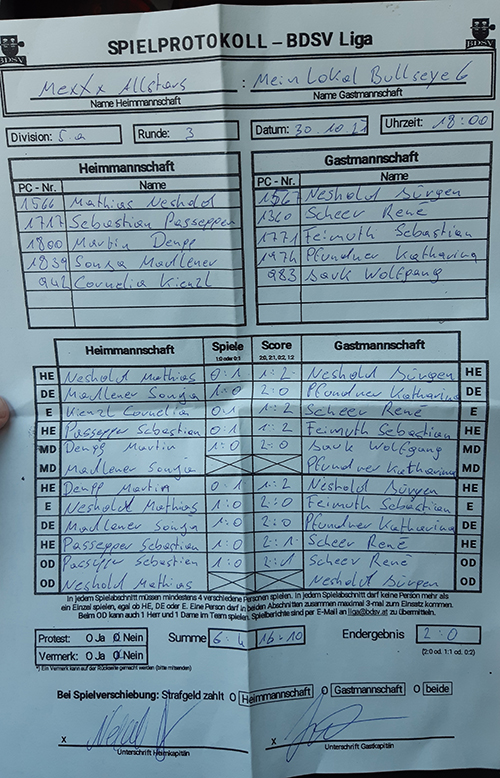 BDSV
SPIELPROTOKOLL – BDSV Liga
BDSV
Mexxx Allstars : Mein Lokal Bullseye 6
Name Heimmannschaft Name Gastmannschaft
Division: 5 a Runde: 3 Datum: 30.10.21 Uhrzeit: 18:00
Heimmannschaft Gastmannschaft
PC - Nr. Name PC - Nr. Name
1566 Mathias Neshold 1567 Neshold Jürgen
1717 Sebastian Passepper 1360 Scheer René
1800 Martin 1771 Feimuth Sebastian
1839 Sonja Madlener 1974 Pfundner Katharina
942 Cornelia Kienzl 983 Wolfgang
Heimmannschaft Spiele Score Gastmannschaft
1:0 oder 0:1 2:0, 2:1, 0:2, 1:2
HE Neshold Mathias 0:1 1:2 Neshold Jürgen HE
DE Madlener Sonja 1:0 2:0 Pfundner Katharina DE
E Kienzl Cornelia 0:1 1:2 Scheer René E
HE Passepper Sebastian 0:1 1:2 Feimuth Sebastian HE
MD Martin 1:0 2:0 Wolfgang MD
MD Madlener Sonja Pfundner Katharina MD
HE Martin 0:1 1:2 Neshold Jürgen HE
E Neshold Mathias 1:0 2:0 Feimuth Sebastian E
DE Madlener Sonja 1:0 2:0 Pfundner Katharina DE
HE Passepper Sebastian 1:0 2:1 Scheer René HE
OD Passepper Sebastian 1:0 2:1 Scheer René OD
OD Neshold Mathias Neshold Jürgen OD
In jedem Spielabschnitt müssen mindestens 4 verschiedene Personen spielen. In jedem Spielabschnitt darf keine Person mehr als
ein Einzel spielen, egal ob HE, DE oder E. Eine Person darf in beiden Abschnitten zusammen maximal 3-mal zum Einsatz kommen.
Beim OD kann auch 1 Herr und 1 Dame im Team spielen. Spielberichte sind per E-Mail an liga@bdsv.at zu übermitteln.
Protest: O Ja O Nein Summe 6:4 16-10 Endergebnis 2:0
Vermerk: O Ja O Nein (2:0 od. 1:1 od. 0:2)
*) Ein Vermerk kann auf der Rückseite gemacht werden (bitte mitsenden)
Bei Spielverschiebung: Strafgeld zahlt O Heimmannschaft O Gastmannschaft O beide
x x
Unterschrift Heimkapitän Unterschrift Gastkapitän